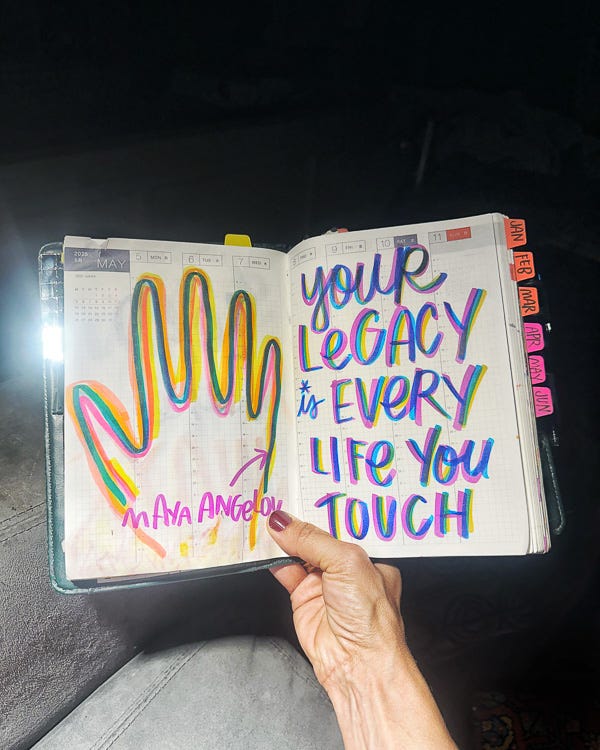 2025
MAY
5 MON
6 TUE
7 WED
9 FRI
10 SAT
11 SUN
MAYA ANGELOU
YOUR
LEGACY
is EVERY
LIFE YOU
TOUCH
JAN
FEB
MAR
APR
MAY
JUN